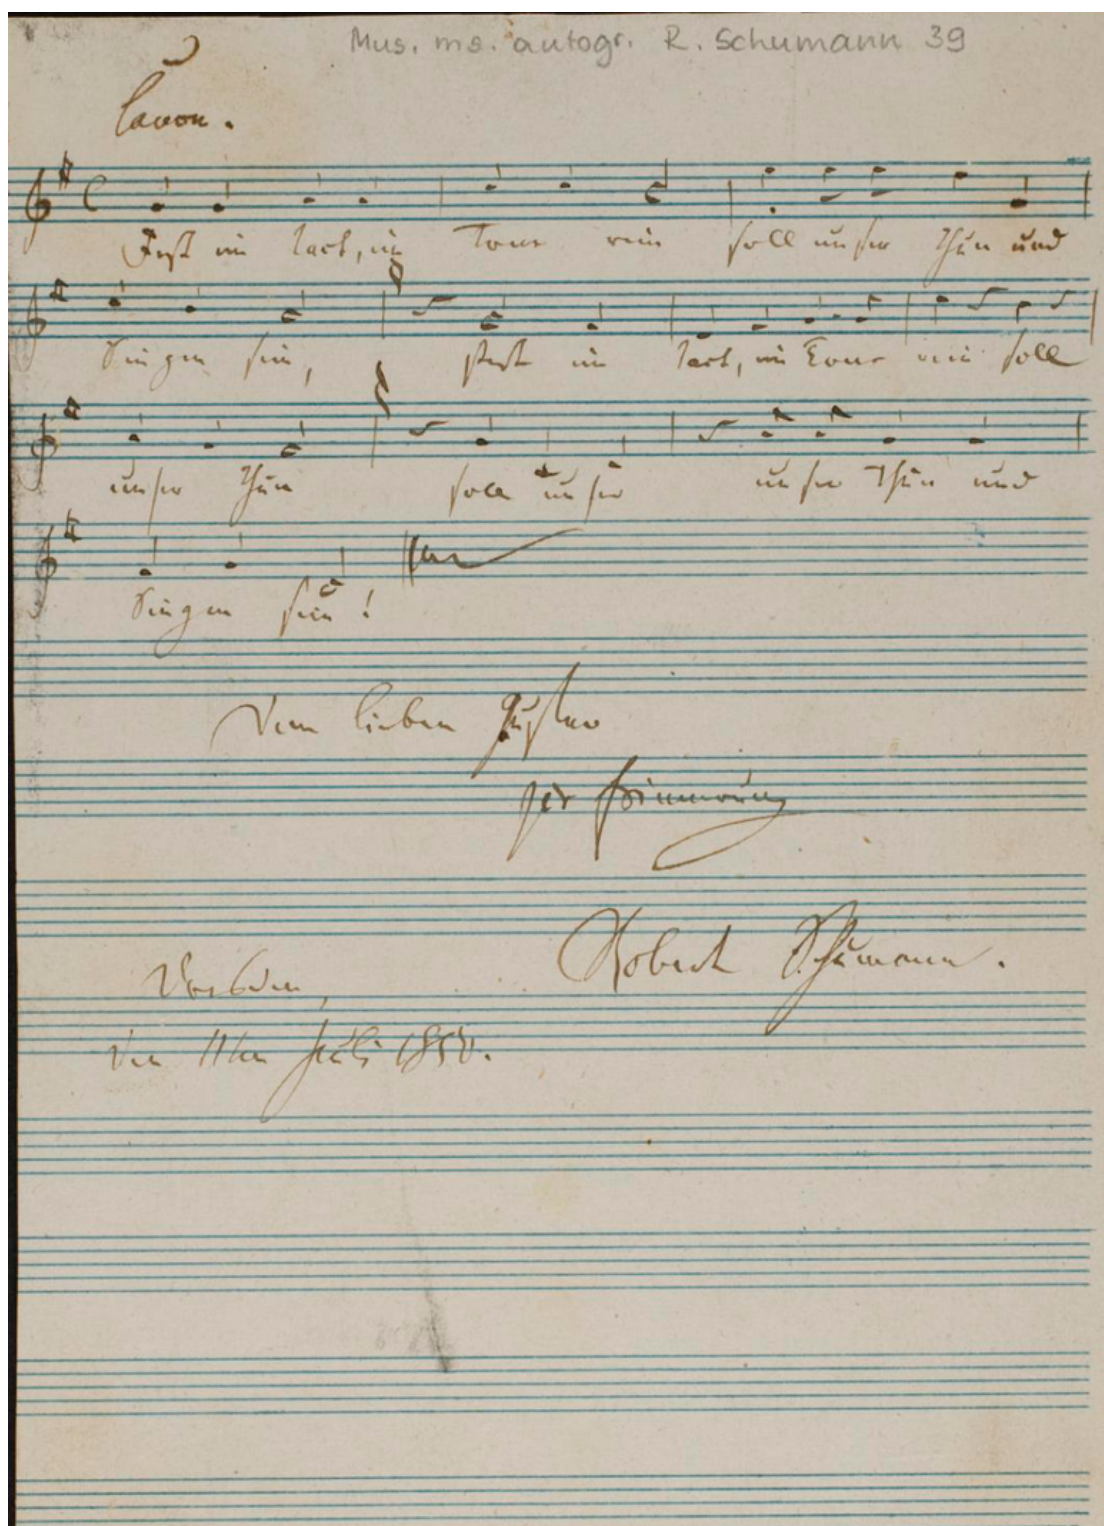 Mus. ms. autogr. R. Schumann 39
Canon.
Fest im Tact, im Tone rein soll unser Thun und
Singen sein, fest im Tact, im Tone rein soll
unser Thun soll unser unser Thun und
Singen sein!
Dem lieben Gustav
zur Erinnerung
Robert Schumann.
Dresden,
den 11ten Juli 1850.